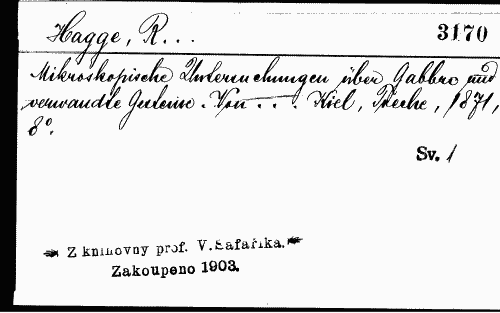 Hagge, R... 3170
Mikroskopische Untersuchungen über Gabbro und
verwandte Gesteine. Von ... Kiel, 1871,
8°.
Sv. 1
Z knihovny prof. V. Šafaříka.
Zakoupeno 1903.